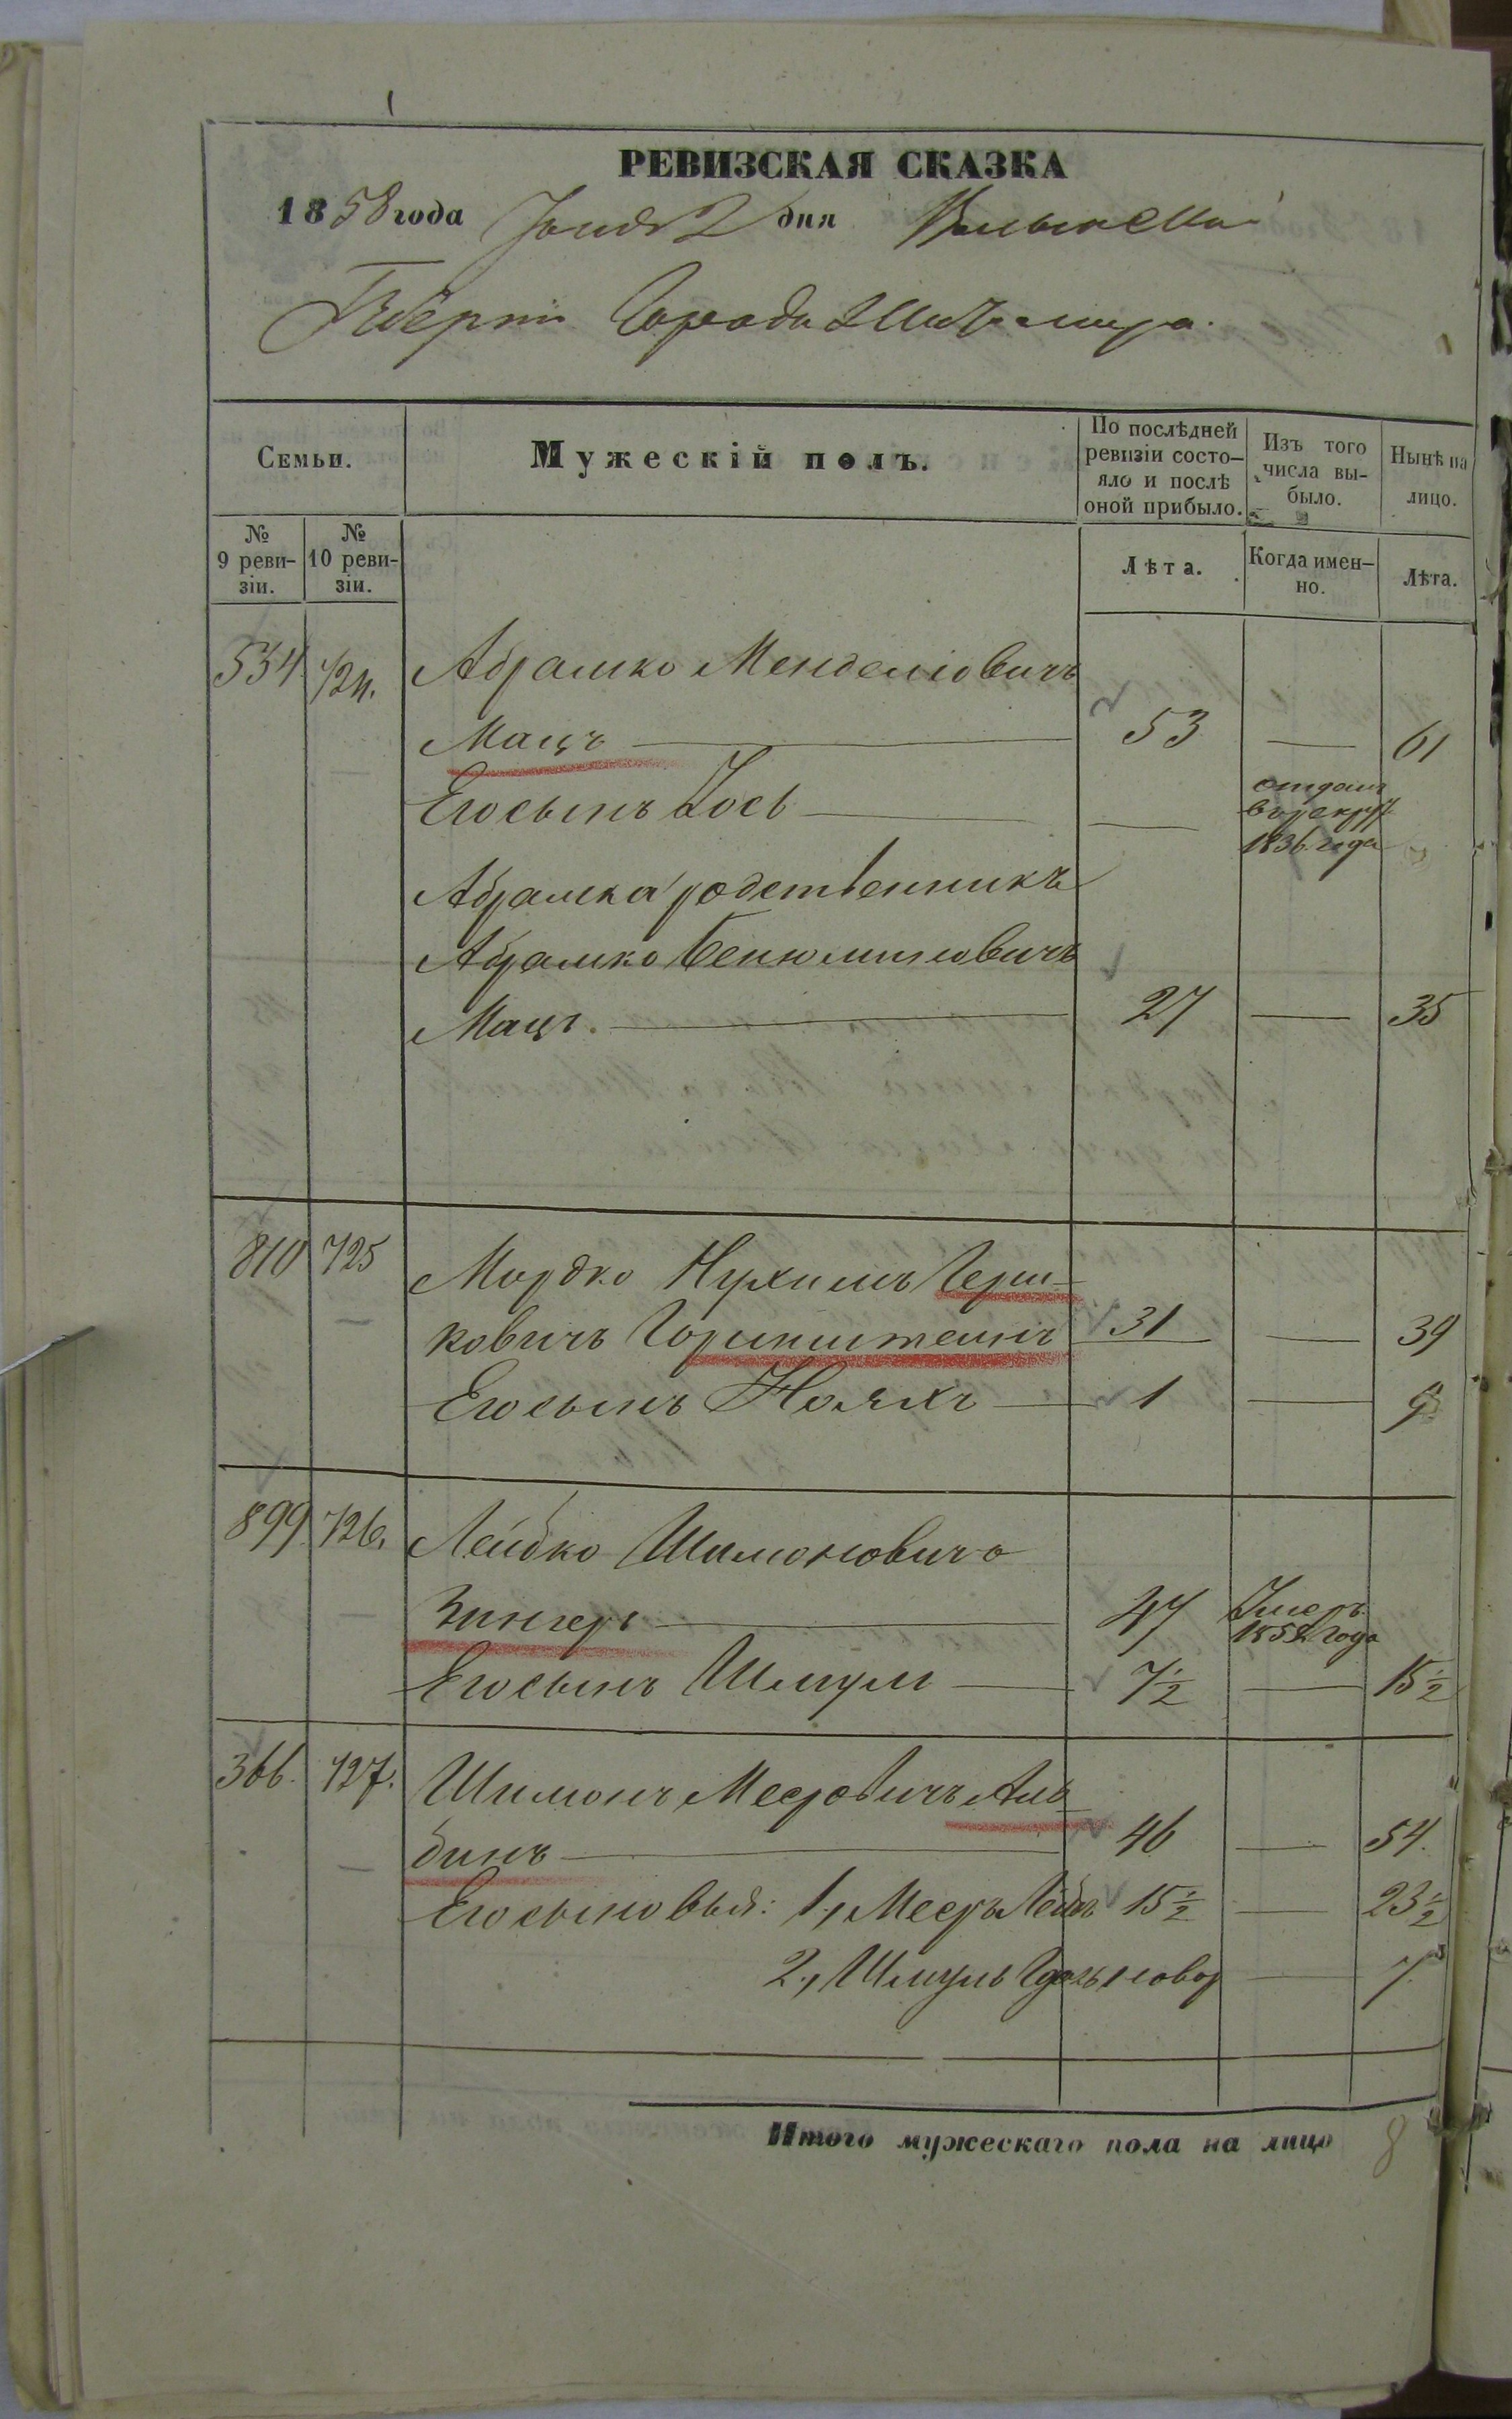 РЕВИЗСКАЯ СКАЗКА
1858 года Іюня 2 дня Волынской
Губерніи Города Житомира.
Семьи.
Мужескій полъ.
По послѣдней ревизіи состо-яло и послѣ оной прибыло.
Изъ того числа вы-было.
Нынѣ на лицо.
№ 9 реви-зіи.
№ 10 реви-зіи.
Лѣта.
Когда имен-но.
Лѣта.
534. 724. Абрамко Менделіовичъ
Мацъ 53 — 61
Его сынъ Іось — отданъ
в рекрут
1836 года
Абрамка родственникъ
Абрамко Бенюминовичъ
Мацъ. 27 — 35
810 725 Мордко Нухимъ Герш-
ковичъ Горинштейнъ 31 — 39
Его сынъ Нояхъ 1 — 9
899. 726. Лейбко Шимоновичъ
Зингеръ 47 Умеръ
1858 года
Его сынъ Шмуль 7½ — 15½
366. 727. Шимонъ Мееровичъ Аль-
бинъ 46 — 54.
Его сыновья: 1, Мееръ Лейбъ 15½ — 23½
2, Шмуль новор — 7
Итого мужескаго пола на лицо 8